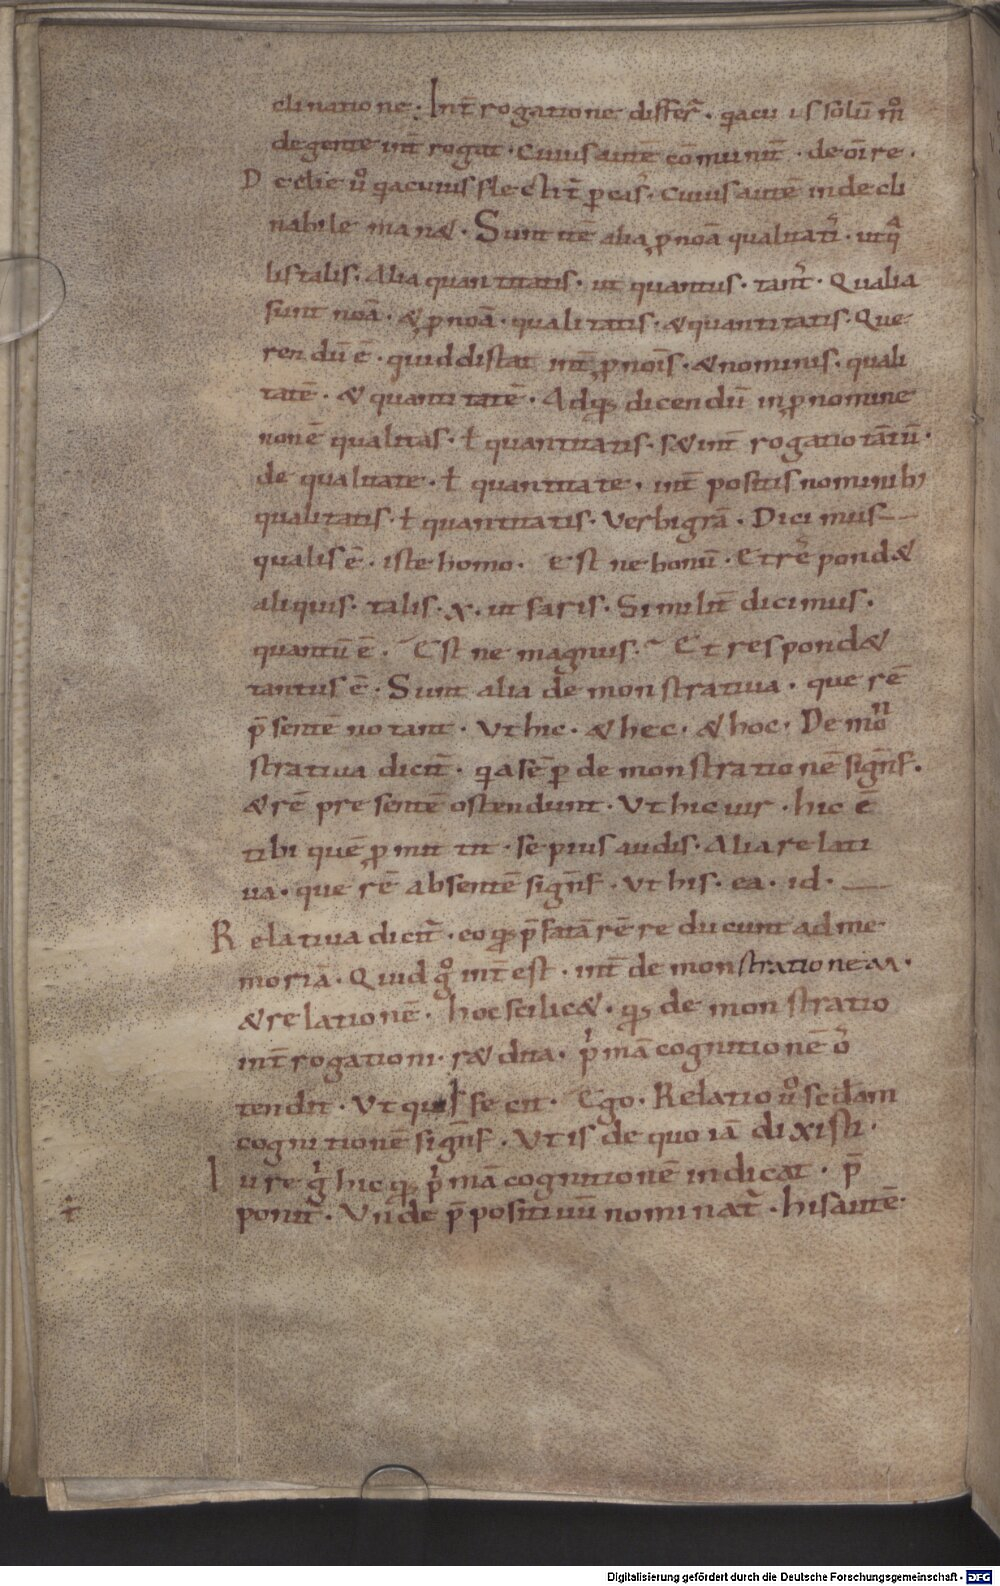 clinatione. Int̄ rogatione differt̄. q̨acu ıs solū m̊
degente int̄ rogat. Cuius autē cōmunit̄. de oīre.
D eclıē ů q̨acuius flectit̄ ꝑcas᾽. Cuius autē indecli
nabile manæ. Sunt itē alia ꝓnoā qualitatı᾽s. ut q̄
lis talis. Alia quantitatis. ut quantus. tant᾽. Qualia
sunt noā. & ꝓnoā. qualitatis. & quantitatis. Que
rendū ē. quid distat int̄ ꝓnoīs. & nominis. quali
tatē. & quantitatē. Ad qđ dicendū in ꝓnomine
non ē qualitas. ł quantitatis. sæ int̄ rogatio tātū.
de qualitate. ł quantitate. int̄ positis nominib;
qualitatis. ł quantitatis. Verbi grā. Dicimus
qualis ē. iste homo. Est ne bonū. Et rē pondæ
aliquis. talis. x. ut saris. Similit̄ dicimus.
quantū ē. Est ne magnus. Et respondæ
tantus ē. Sunt alia demonstratiua. que rē
p̄sentē notant. Ut hic. & hec. & hoc. De mōn
stratiua dicit̄. q̨a sē ꝑ demonstrationē sign̄f.
& rē presentē ostendunt. Ut hic uir. hic ē
tibi quē ꝓmitti. sepius audis. Alia relati
ua. que rē absentē sign̄f. Ut his. ea. id.
R elatiua dicit̄. eo qđ p̄fatā rē reducunt ad me
moriā. Quid g̊ int̄ est. int̄ demonstrationem.
& relationē. hoc scilicæ. qđ demonstratio
int̄ rogationi. ræ dita. p̍mā cognitionē o᾽
tendit. Ut quis fecit. Ego. Relatio ů secđam
cognitionē sign̄f. Ut is de quo iā dixisti.
I ure g̍ hic qđ p̍mā cognitionē indicat. p̄
ponit̄. Unde p̄positiuū nominat̄. his autē